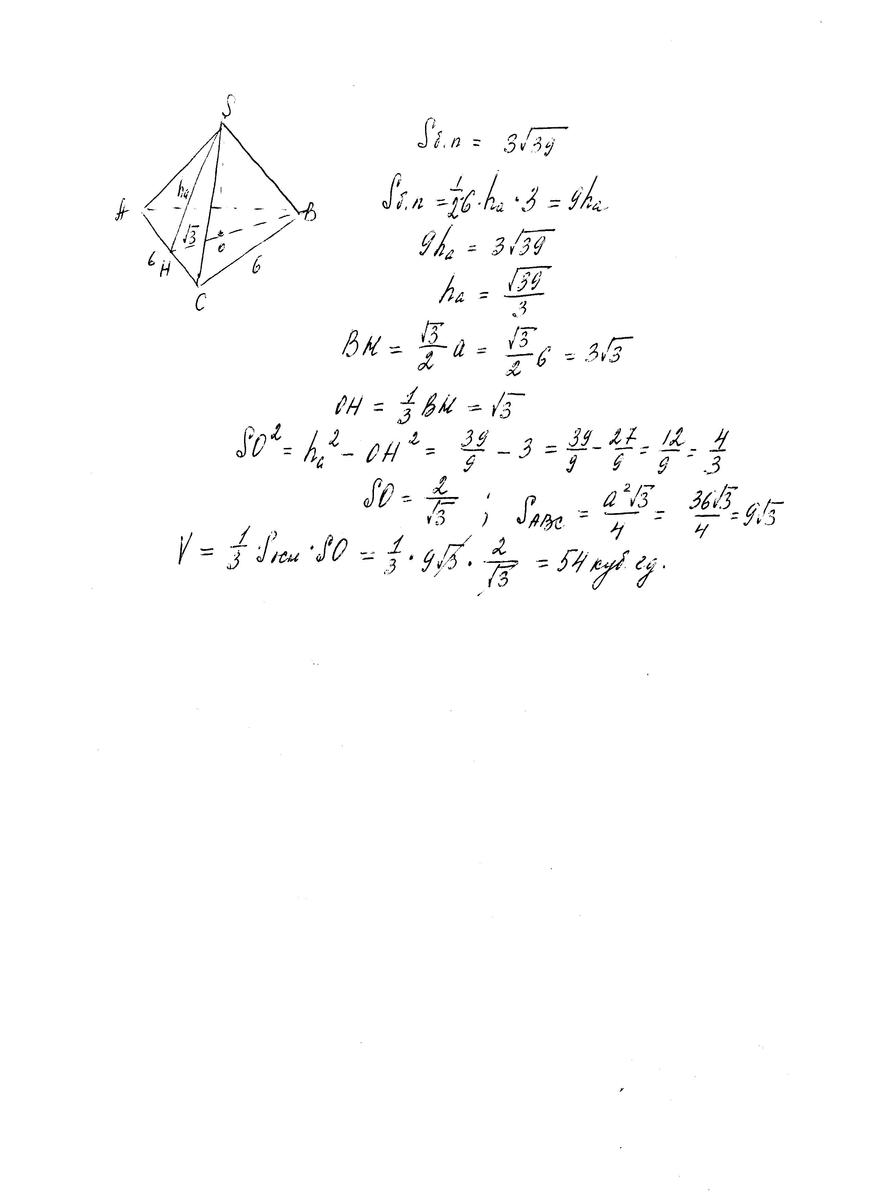 S
hа
A
B
√3
о
6
H
6
C
Sб.п = 3√39
Sб.п = 1/2 6 · hа · 3 = 9hа
9hа = 3√39
hа = √39/3
BH = √3/2 a = √3/2 6 = 3√3
OH = 1/3 BH = √3
SO² = hа² - OH² = 39/9 - 3 = 39/9 - 27/9 = 12/9 = 4/3
SO = 2/√3 ; SABC = a²√3/4 = 36√3/4 = 9√3
V = 1/3 · Sосн · SO = 1/3 · 9√3 · 2/√3 = 54 куб. ед.